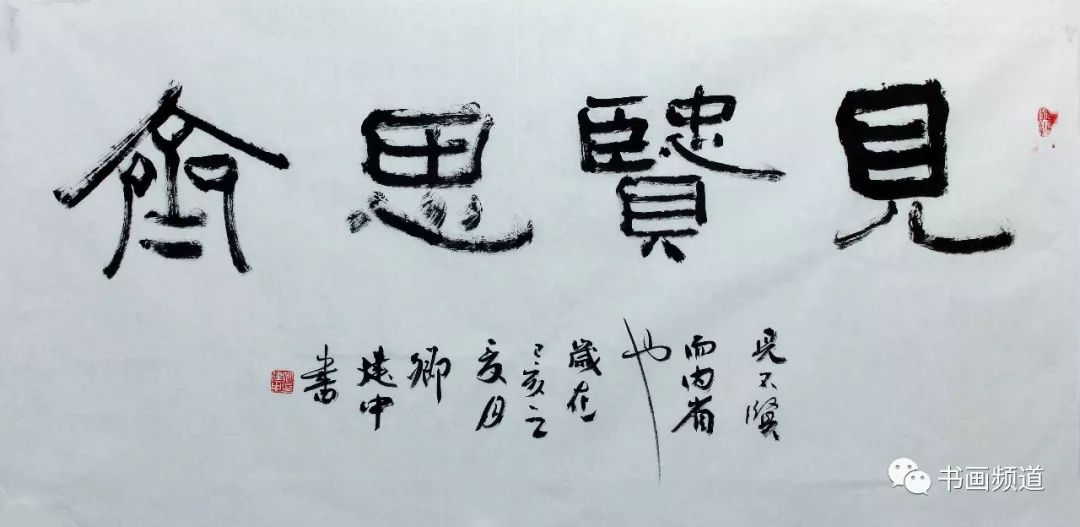 見賢思齊
見不賢
而内省
也
歲在
己亥之
夏月
卿
建中
書
书画频道